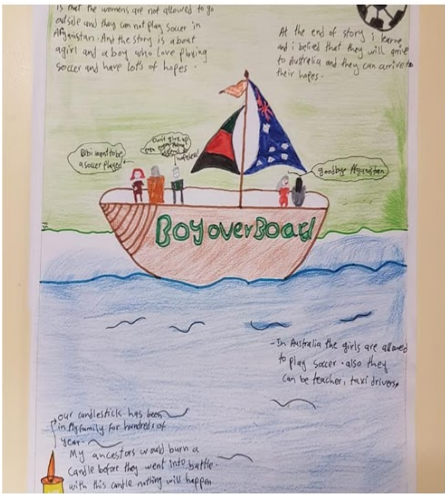 is that the womens are not allowed to go
outside and they can not play soccer in
Afganistan. And the story is about
a girl and a boy who love playing
soccer and have lots of hopes.
At the end of story i learne
and i belied that they will arrive
to Australia and they can arrive to
their hopes.
Bibi want to be
a soccer player
Don't give up
goodbye Afganestan
Boy over Board
- In Australia the girls are allowed
to play soccer. also they
can be teacher, taxi drivers
our candlestick has been
in my family for hundreds of
year
My ancestors would burn a
candle before they went into battle
with this candle nothing will happen